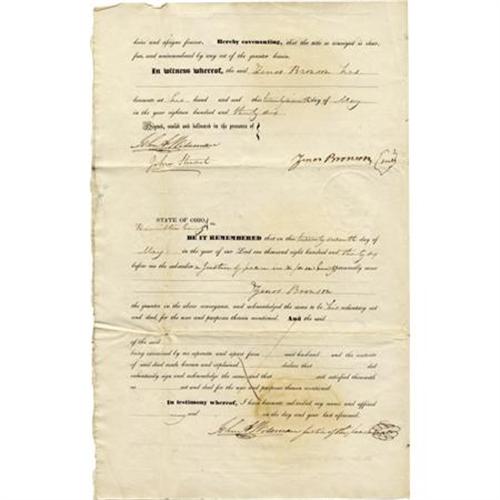 heirs and assigns forever. Hereby covenanting, that the title so conveyed is clear,
free, and unincumbered by any act of the grantor herein.
In witness whereof, the said Zenos Bronson has
hereunto set his hand and seal this twenty seventh day of May
in the year eighteen hundred and thirty six
Signed, sealed and delivered in the presence of
John A Wiseman
John
Zenos Bronson (seal)
STATE OF OHIO, ss.
Hamilton County
BE IT REMEMBERED that on this twenty seventh day of
May in the year of our Lord one thousand eight hundred and thirty six
before me the subscriber a Justice of peace in & for said County personally came
Zenos Bronson
the grantor in the above conveyance, and acknowledged the same to be his voluntary act
and deed, for the uses and purposes therein mentioned. And the said
of the said
being examined by me separate and apart from said husband, and the contents
of said deed made known and explained declares that did
voluntarily sign and acknowledge the same and that still satisfied therewith
as act and deed for the uses and purposes therein mentioned.
In testimony whereof, I have hereunto subscribed my name and affixed
my seal on the day and year last aforesaid.
John A Wiseman justice of the peace